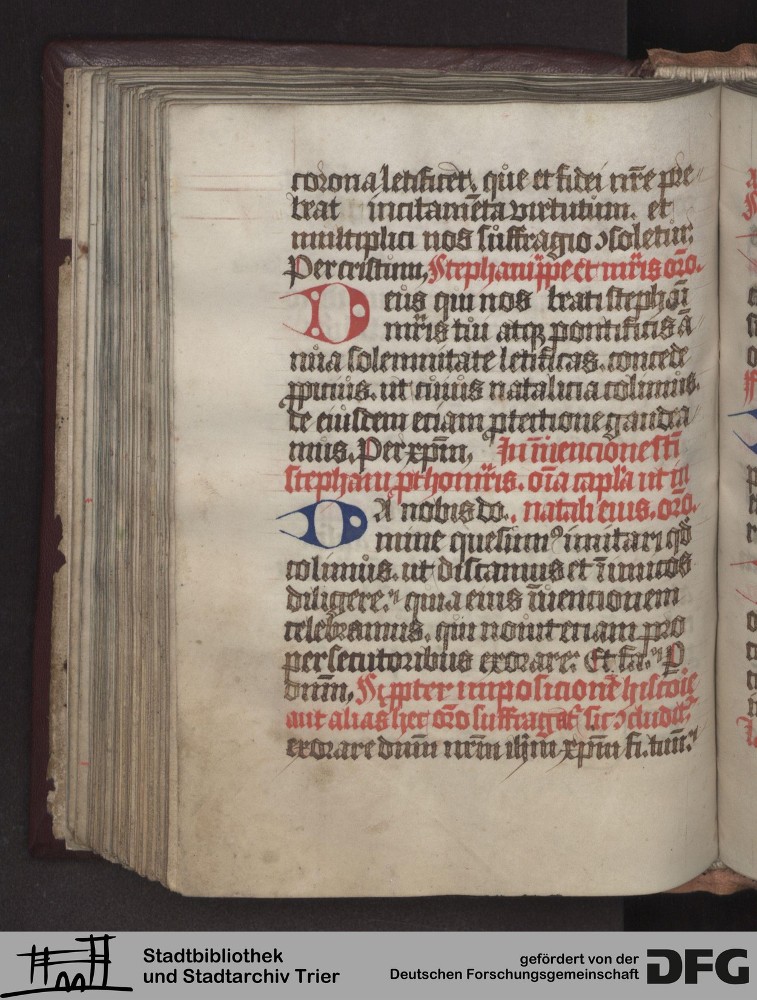 corona letificet. que et fidei nr̄e pre
beat incitamēta virtutum. et
multiplici nos suffragio ɔsoletur.
Per cristum. Stephani ꝑpe et mr̄is orō.
Deus qui nos beati stephāi
mr̄is tui atqꝫ pontificis ā
nua solemnitate letificas. concede
ꝓpicius. ut cuius natalicia colimus.
de eiusdem eciam ꝓtectione gaudea
mus. Per xp̄m. In īuencione sc̄i
stephani ꝓthomr̄is. oīa capl̓a ut in
DA nobis do. natali eius. orō.
mine quesumꝰ imitari qd̄
colimus. ut discamus et īimicos
diligere. quia eius īuencionem
celebramus. qui nouit eciam pro
persecutoribus exorare. Et fa. P
dnm̄. Si ꝓpter imposicionē historie
aut alias hec orō suffragat̉ sic ɔcludit̉.
exorare dnm̄ nrm̄ ihm̄ xp̄m fi. tuū.
Stadtbibliothek
und Stadtarchiv Trier
gefördert von der
Deutschen Forschungsgemeinschaft
DFG